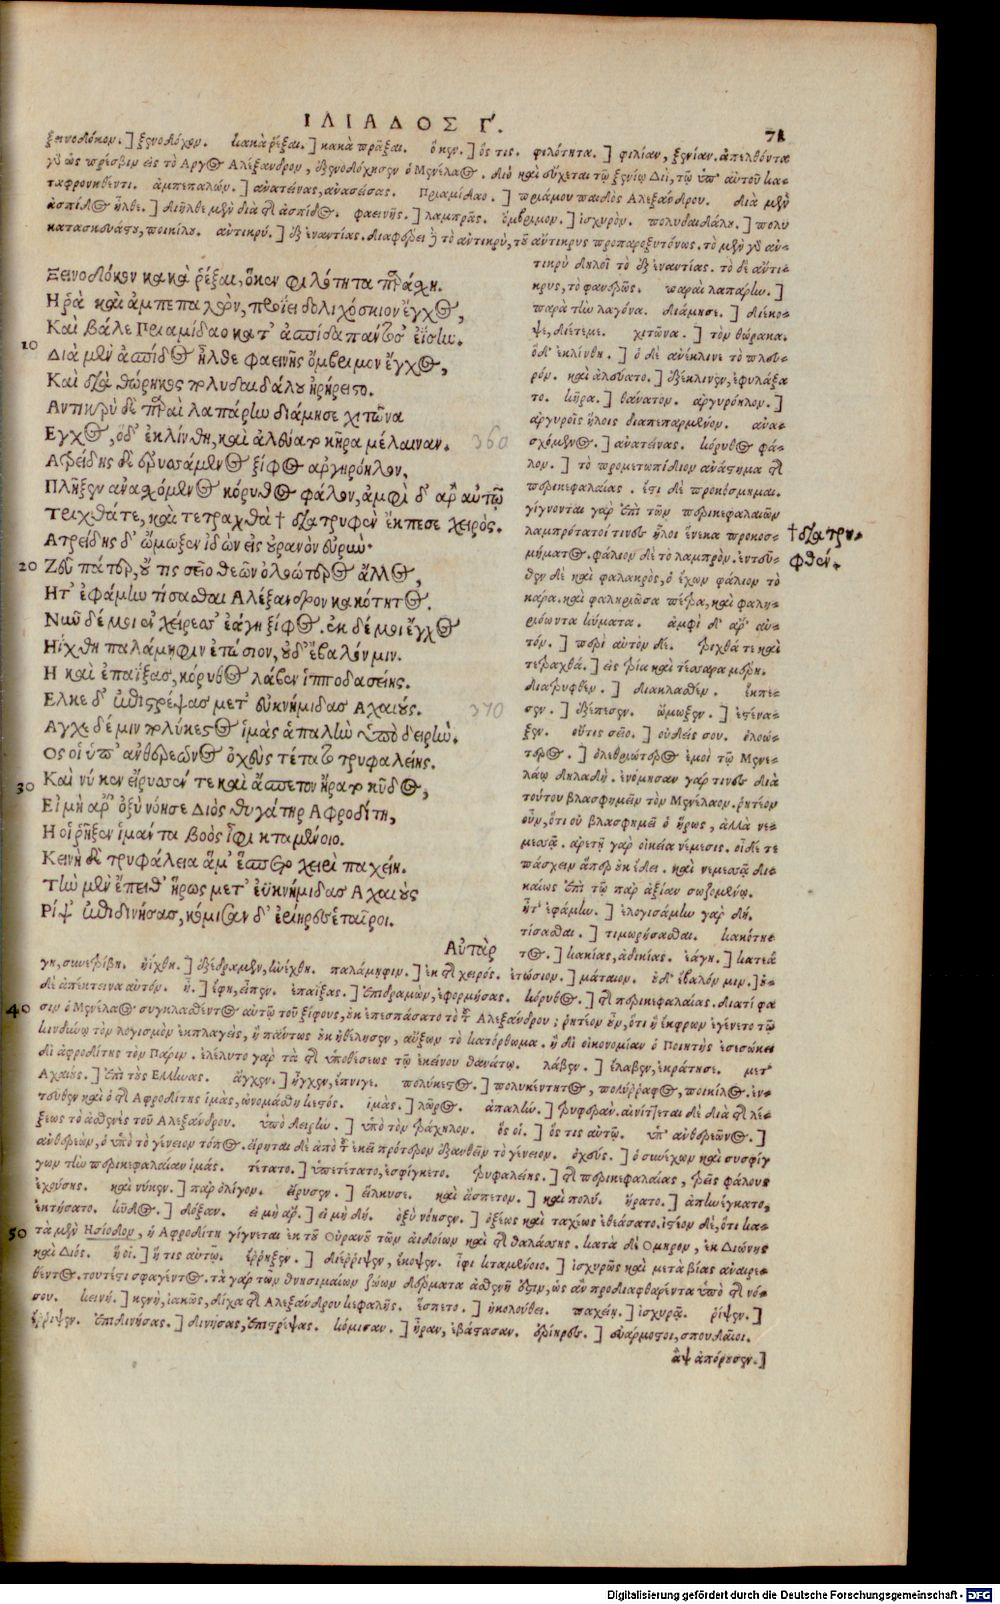 ΙΛΙΑΔΟΣ Γ.
71
ξεινοδόκον.] ξενοδόχον. κακὰ ῥέξαι.] κακὰ πρᾶξαι. ὅ κεν.] ὅς τις. φιλότητα.] φιλίαν, ξενίαν. ἀπελθόντα
γὰρ ὡς πρέσβιν εἰς τὸ Ἄργος Ἀλέξανδρον, ἐξενοδόχησεν ὁ Μενέλαος. διὸ καὶ εὔχεται τῷ ξενίῳ Διὶ, τῷ ὑπ' αὐτοῦ κα-
ταφρονηθέντι. ἀμπεπαλών.] ἀνατείνας, ἀνασείσας. Πριαμίδαο.] πριάμου παιδὸς Ἀλεξάνδρου. διὰ μὲν
ἀσπίδος ἦλθε.] διῆλθε μὲν διὰ τῆς ἀσπίδος. φαεινῆς.] λαμπρᾶς. ὄμβριμον.] ἰσχυρὸν. πολυδαιδάλου.] πολυ
κατασκευάστου, ποικίλου. ἀντικρύ.] ἐξ ἐναντίας. διαφέρει δὲ τὸ ἀντικρὺ, τοῦ ἄντικρυς προπαροξυτόνως. τὸ μὲν γὰρ ἀν-
Ξεινοδόκον κακὰ ῥέξαι, ὅκεν φιλότητα παράσχῃ.
Ηῥὰ καὶ ἀμπεπαλὼν, προΐει δολιχόσκιον ἔγχος,
Καὶ βάλε Πριαμίδαο κατ' ἀσπίδα πάντοσ' ἐΐσην.
10
Διὰ μὲν ἀσπίδος ἦλθε φαεινῆς ὄμβριμον ἔγχος,
Καὶ διὰ θώρηκος πολυδαιδάλου ἠρήρειστο.
Αντικρὺ δὲ παραὶ λαπάρην διάμησε χιτῶνα
Εγχος, ὁδ' ἐκλίνθη, καὶ ἀλεύατο κῆρα μέλαιναν.
360
Ατρείδης δὲ ἐρυσσάμενος ξίφος ἀργυρόηλον,
Πλῆξεν ἀνασχόμενος κόρυθος φάλον, ἀμφὶ δ' ἄρ' αὐτῷ
Τριχθά τε, καὶ τετραχθὰ † διατρυφὲν ἔκπεσε χειρός.
Ατρείδης δ' ᾤμωξεν ἰδὼν εἰς οὐρανὸν εὐρύν·
20
Ζεῦ πάτερ, οὔ τις σεῖο θεῶν ὀλοώτερος ἄλλος,
Ητ' ἐφάμην τίσασθαι Αλέξανδρον κακότητος.
Νῦν δέ μοι ἐν χείρεσσ' ἐάγη ξίφος. ἐκ δέ μοι ἔγχος
Ηΐχθη παλάμηφιν ἐτώσιον, οὐδ' ἔβαλόν μιν.
Η καὶ ἐπαΐξας, κόρυθος λάβεν ἱπποδασείης.
Ελκε δ' ἐπιστρέψας μετ' ἐϋκνήμιδας Αχαιούς.
370
Αγχε δέ μιν πολύκεστος ἱμὰς ἁπαλὴν ὑπὸ δειρήν.
Ος οἱ ὑπ' ἀνθερεῶνος ὀχεὺς τέτατο τρυφαλείης.
30
Καὶ νύ κεν εἴρυσσέν τε καὶ ἄσπετον ἤρατο κῦδος,
Εἰ μὴ ἄρ' ὀξὺ νόησε Διὸς θυγάτηρ Αφροδίτη,
Η οἱ ῥῆξεν ἱμάντα βοὸς ἶφι κταμένοιο.
Κεινὴ δὲ τρυφάλεια ἅμ' ἕσπετο χειρὶ παχείῃ.
Τὴν μὲν ἔπειθ' ἥρως μετ' ἐϋκνήμιδας Αχαιοὺς
Ρίψ' ἐπιδινήσας, κόμισαν δ' ἐρίηρες ἑταῖροι.
Αὐτὰρ
τικρὺ δηλοῖ τὸ ἐξ ἐναντίας. τὸ δὲ ἄντι-
κρυς, τὸ φανερῶς. παραὶ λαπάρην.]
παρὰ τὴν λαγόνα. διάμησε.] διέκο-
ψε, διέτεμε. χιτῶνα.] τὸν θώρακα.
ὁδ' ἐκλίνθη.] ὁ δὲ ἀνέκλινε τὸ πλευ-
ρόν. καὶ ἀλεύατο.] ἐξέκλινεν, ἐφυλάξα
το. κῆρα.] θάνατον. ἀργυρόηλον.]
ἀργυροῖς ἥλοις διαπεπαρμένον. ἀνα-
σχόμενος.] ἀνατείνας. κόρυθος φά-
λον.] τὸ προμετωπίδιον ἀνάστημα τῆς
περικεφαλαίας. ἔστι δὲ προκόσμημα.
γίγνονται γὰρ ἐπὶ τῶν περικεφαλαιῶν
λαμπρότατοί τινες ἧλοι ἕνεκα προκοσ-
μήματος. φάλιον δὲ τὸ λαμπρὸν. ἐντεῦ-
θεν δὲ καὶ φαλακρὸς, ὁ ἔχων φάλιον τὸ
κάρα. καὶ φαληριῶσα πέτρα, καὶ φαλη-
ριόωντα κύματα. ἀμφὶ δ' ἄρ' αὐ-
τόν.] περὶ αὐτὸν δὲ. τριχθά τε καὶ
τετραχθά.] εἰς τρία καὶ τέσσαρα μέρη.
διατρυφέν.] διακλασθέν. ἔκπε-
σεν.] ἐξέπεσεν. ᾤμωξεν.] ἐστένα-
ξεν. οὔτις σεῖο.] οὐδείς σου. ὀλοώ-
τερος.] ὀλεθριώτερος ἐμοὶ τῷ Μενε-
λάῳ δηλαδή. ἐνόμησαν γάρ τινες διὰ
τούτου βλασφημεῖν τὸν Μενέλαον. ῥητέον
οὖν, ὅτι οὐ βλασφημεῖ ὁ ἥρως, ἀλλὰ νε-
μεσᾷ. ἀρετῇ γὰρ οἰκεία νέμεσις. οἶδέ τε
πάσχειν ἅπερ οὐκ ἔδει. καὶ νεμεσᾷ δι-
καίως ἐπὶ τῷ παρ' ἀξίαν σωζομένῳ.
ἦτ' ἐφάμην.] ἐλογισάμην γὰρ δή.
τίσασθαι.] τιμωρήσασθαι. κακότη-
τος.] κακίας, ἀδικίας. ἐάγη.] κατεά
† διατρυ-
φθέν.
γη, συνετρίβη. ἠΐχθη.] ἐξέδραμεν, ἠνέχθη. παλάμηφιν.] ἐκ τῆς χειρός. ἐτώσιον.] μάταιον. οὐδ' ἔβαλόν μιν.] οὐ-
δὲ ἀπέκτεινα αὐτόν. ἦ.] ἔφη, εἶπεν. ἐπαΐξας.] ἐπιδραμὼν, ἐφορμήσας. κόρυθος.] τῆς περικεφαλαίας. διατί φα
40
σιν ὁ Μενέλαος συγκλασθέντος αὐτῷ τοῦ ξίφους, οὐκ ἐπεσπάσατο τὸ τοῦ Ἀλεξάνδρου; ῥητέον οὖν, ὅτι ἢ ἔκφρων ἐγένετο τῷ
κινδύνῳ τὸν λογισμὸν ἐκπλαγεὶς, ἢ πάντως οὐκ ἠθέλησεν, αὔξων τὸ κατόρθωμα. ἢ δι' οἰκονομίαν ὁ Ποιητὴς ἐσεσώκει
δι' ἀφροδίτης τὸν Πάριν. ἐλέλυτο γὰρ τὰ τῆς ὑποθέσεως τῷ ἐκείνου θανάτῳ. λάβεν.] ἔλαβεν, ἐκράτησε. μετ'
Ἀχαιούς.] ἐπὶ τοὺς Ἕλληνας. ἄγχεν.] ἦγχεν, ἔπνιγε. πολύκεστος.] πολυκέντητος, πολύρραφος, ποικίλος. ἐν-
τεῦθεν καὶ ὁ τῆς Ἀφροδίτης ἱμὰς, ὠνομάσθη κεστός. ἱμὰς.] λῶρος. ἁπαλήν.] τρυφεράν. αἰνίττεται δὲ διὰ τῆς λέ-
ξεως τὸ ἀσθενὲς τοῦ Ἀλεξάνδρου. ὑπὸ δειρήν.] ὑπὸ τὸν τράχηλον. ὅς οἱ.] ὅς τις αὐτῷ. ὑπ' ἀνθερεῶνος.]
ἀνθερεὼν, ὁ ὑπὸ τὸ γένειον τόπος. εἴρηται δὲ ἀπὸ τοῦ ἐκεῖ πρότερον ἐξανθεῖν τὸ γένειον. ὀχεύς.] ὁ συνέχων καὶ συσφίγ
γων τὴν περικεφαλαίαν ἱμάς. τέτατο.] ὑπετέτατο, ἐσφίγκετο. τρυφαλείης.] τῆς περικεφαλαίας, τρεῖς φάλους
ἐχούσης. καὶ νύκεν.] παρ' ὀλίγον. εἴρυσεν.] εἵλκυσε. καὶ ἄσπετον.] καὶ πολύ. ἤρατο.] ἀπηνέγκατο,
ἐκτήσατο. κῦδος.] δόξαν. εἰ μὴ ἄρ'.] εἰ μὴ δή. ὀξὺ νόησεν.] ὀξέως καὶ ταχέως ἐθεάσατο. ἰστέον δὲ, ὅτι κα-
50
τὰ μὲν Ἡσίοδον, ἡ Ἀφροδίτη γίγνεται ἐκ τοῦ Οὐρανοῦ τῶν αἰδοίων καὶ τῆς θαλάσσης. κατὰ δὲ Ὅμηρον, ἐκ Διώνης
καὶ Διός. ἥ οἱ.] ἥ τις αὐτῷ. ἔρρηξεν.] διέρρηψεν, ἔκοψεν. ἶφι κταμένοιο.] ἰσχυρῶς καὶ μετὰ βίας ἀναιρε-
θέντος. τουτέστι σφαγέντος. τὰ γὰρ τῶν θνησιμαίων ζώων δέρματα ἀσθενῆ ἐστιν, ὡς ἂν προδιαφθαρέντα ὑπὸ τῆς νό-
σου. κεινή.] κενὴ, κακῶς, δίχα τῆς Ἀλεξάνδρου κεφαλῆς. ἕσπετο.] ἠκολούθει. παχείῃ.] ἰσχυρᾷ. ῥίψεν.]
ἔρριψεν. ἐπιδινήσας.] δινήσας, ἐπιστρέψας. κόμισαν.] ἦραν, ἐβάστασαν. ἐρίηρες.] εὐάρμοστοι, σπουδαῖοι.
ἂψ ἀπόρουσεν.]
Digitalisierung gefördert durch die Deutsche Forschungsgemeinschaft - DFG